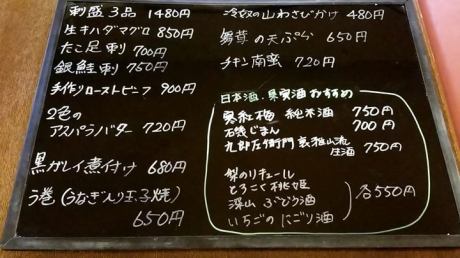 刺盛 3品 1480円
生キハダマグロ 850円
たこ足刺 700円
銀鮭刺 750円
手作りローストビーフ 900円
2色の
アスパラバター 720円
黒ガレイ煮付け 680円
う巻(うなぎ入り玉子焼)
650円
冷奴の山わさびがけ 480円
舞茸の天ぷら 650円
チキン南蛮 720円
日本酒・果実酒おすすめ
寒紅梅 純米酒 750円
磯じまん 700円
九郎左衛門 裏雅山流
生酒 750円
梨のリキュール
とろこく桃姫
深山 ぶどう酒
いちごのにごり酒
各550円